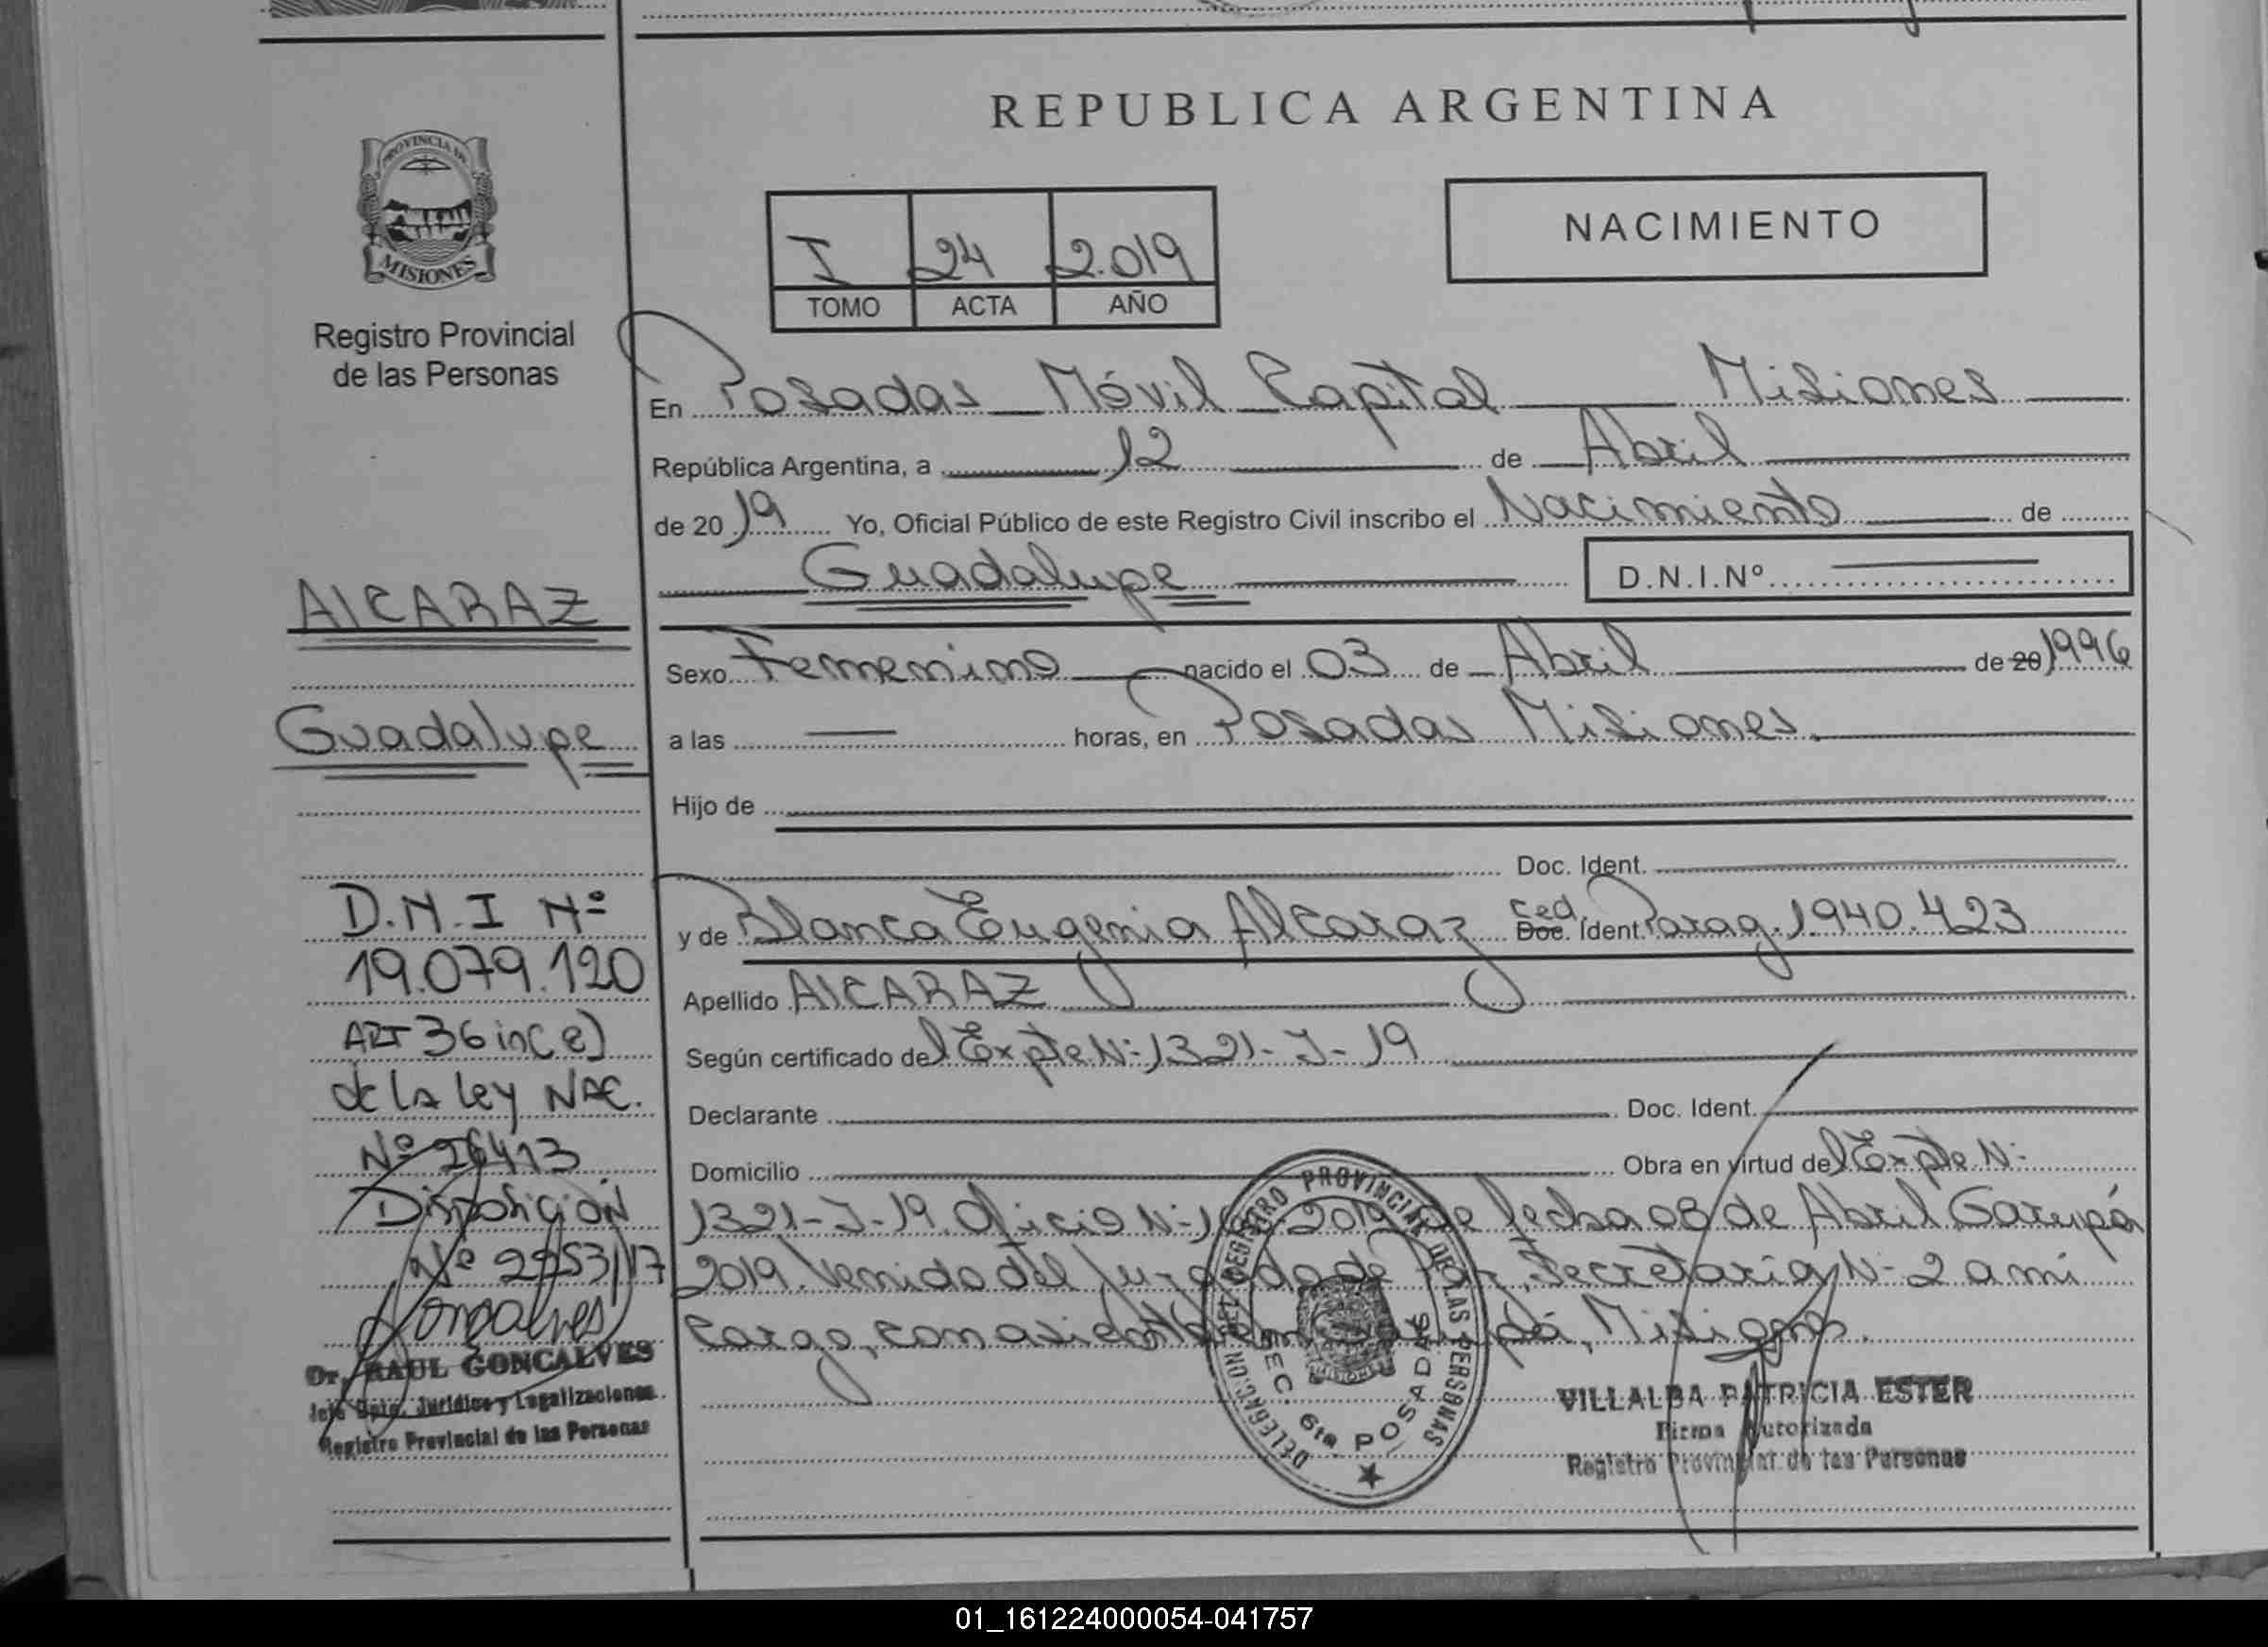 REPUBLICA ARGENTINA
PROVINCIA DE
MISIONES
Registro Provincial
de las Personas
NACIMIENTO
I 24 2.019
TOMO ACTA AÑO
En Posadas Móvil Capital Misiones
República Argentina, a 12 de Abril
de 2019 Yo, Oficial Público de este Registro Civil inscribo el Nacimiento de
Guadalupe D.N.I.Nº
Sexo Femenino nacido el 03 de Abril de 20 1996
a las horas, en Posadas Misiones.
Hijo de
Doc. Ident.
y de Blanca Eugenia Alcaraz Ced. Doc. Ident. Parag. 1.940.423
Apellido AlCARAZ
Según certificado del Expte N: 1321-J-19
Declarante Doc. Ident.
Domicilio Obra en virtud del Expte N:
1321-J-19. Oficio N: 2019 de fecha 08 de Abril Garupá
2019. Venido del Juzgado de Paz, Secretaria N: 2 a mi
cargo, con asiento en Garupá, Misiones.
AlCARAZ
Guadalupe
D.N.I Nº
19.079.120
ART 36 inc e)
de la Ley NAC.
Nº 26413
Disposición
Nº 2253/17
Goncalves
Dr. RAUL GONCALVES
Jefe Dpto. Jurídico y Legalizaciones
Registro Provincial de las Personas
DELEGACION DEL REGISTRO PROVINCIAL DE LAS PERSONAS
SEC. 6ta POSADAS
VILLALBA PATRICIA ESTER
Firma Autorizada
Registro Provincial de las Personas
01_161224000054-041757